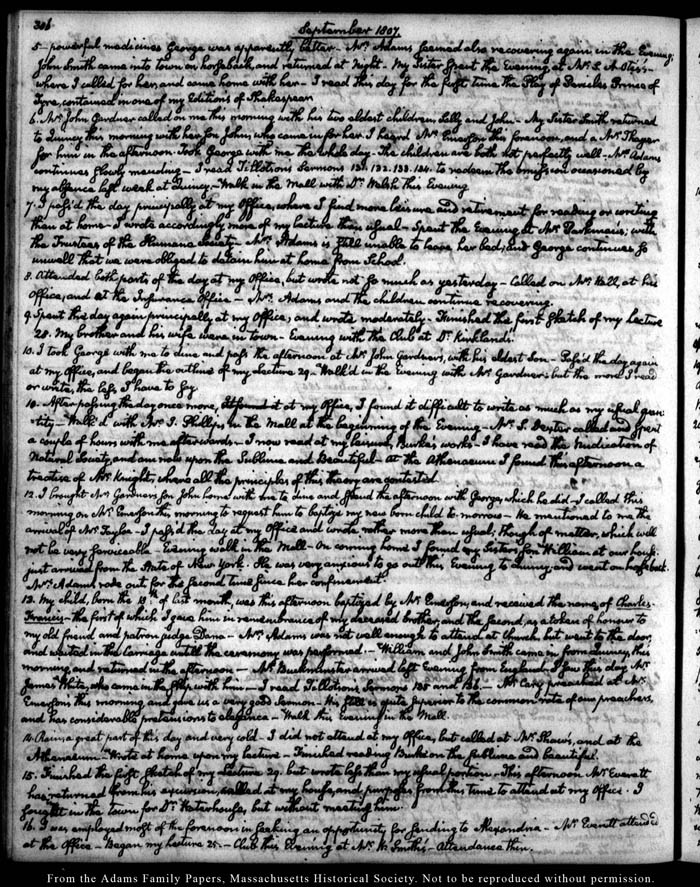 306
September 1807.
5 — powerful medicines George was apparently better — Mrs. Adams seemed also recovering again in the Evening
John Smith came into town on horseback, and returned at Night. My Sister spent the Evening at Mr. S. A. Otis's —
where I called for her, and came home with her — I read this day for the first time the Play of Pericles Prince of
Tyre, contained in one of my Editions of Shakespear.
6. Mr. John Gardner called on me this morning with his two eldest children Sally and John — My Sister Smith returned
to Quincy this morning with her Son John, who came in for her. I heard Mr. Emerson this forenoon, and a Mr. Thayer
for him in the afternoon. Took George with me the whole day — The children are both not perfectly well — Mrs. Adams
continues slowly mending — I read Tillotsons Sermons 131. 132. 133. 134. to redeem the omission occasioned by
my absence last week at Quincy — Walk in the Mall with Dr. Welsh this Evening
7. I pass'd the day principally at my Office, where I find more leisure and retirement for reading or writing
than at home — I wrote accordingly more of my lecture than usual — Spent the Evening at Mr. Parkman's; with
the Trustees of the Humane Society — Mrs. Adams is still unable to leave her bed; and George continues so
unwell that we were obliged to detain him at home from School.
8. Attended both parts of the day at my Office, but wrote not so much as yesterday — Called on Mr. Hall, at his
Office, and at the Insurance Office — Mrs. Adams and the children continue recovering.
9. Spent the day again principally at my Office, and wrote moderately — Finished the first sketch of my Lecture
28. My brother and his wife were in town — Evening with the Club at Dr. Kirkland's.
10. I took George with me to dine and pass the afternoon at Mr. John Gardners, with his eldest Son — Pass'd the day again
at my Office, and began the outline of my Lecture 29. Walk'd in the Evening with Mr. Gardner; but the more I read
or write, the less I have to say
11. After passing the day once more, at my Office, I found it difficult to write as much as my usual quan-
-tity — Walk'd with Mr. J. Phillips, in the Mall at the beginning of the Evening — Mr. S. Dexter called and spent
a couple of hours with me afterwards — I now read at my leisure, Burke's works — I have read the Vindication of
Natural Society, and am now upon the Sublime and Beautiful — at the Athenaeum I found this afternoon a
treatise of Mr. Knight, where all the principles of this theory are contested.
12. I brought Mr. Gardners son John home with me to dine and spend the afternoon with George, which he did — I called this
morning on Mr. Emerson this morning to request him to baptize my new born child to morrow — He mentioned to me the
arrival of Mr. Taylor. I pass'd the day at my Office and wrote rather more than usual; though of matter, which will
not be very serviceable — Evening walk in the Mall — On coming home I found my Sister's son William at our house
just arrived from the State of New York. He was very anxious to go out this Evening to Quincy, and went on horseback.
Mrs. Adams rode out for the second time since her confinement.
13. My child, born the 18th of last month, was this afternoon baptized by Mr. Emerson, and received the name, of Charles-
Francis — the first of which I gave him in remembrance of my deceased brother, and the second, as a token of honour to
my old friend and patron judge Dana — Mrs. Adams was not well enough to attend at Church but went to the door,
and waited in the Carriage until the ceremony was performed — William and John Smith came in from Quincy, this
morning and returned in the afternoon — Mr. Buckminster arrived last Evening from England. I saw this day Mr.
James White, who came in the ship with him — I read Tillotsons Sermons 135 and 136. — Mr. Cary preached at Mr.
Emerson's this morning, and gave us a very good Sermon — His style is quite superior to the common rate of our preachers,
and has considerable pretensions to elegance — Walk this Evening in the Mall
14. Rain a great part of this day and very cold — I did not attend at my Office, but called at Mr. Shaw's, and at the
Athenaeum — Wrote at home upon my lecture — Finished reading Burke on the sublime and beautiful.
15. Finished the first sketch of my Lecture 29. but wrote less than my usual portion — This afternoon Mr. Everett
has returned from his excursion, called at my house, and purposes from this time to attend at my Office. I
sought in the town for Dr. Waterhouse, but without meeting him.
16. I was employed most of the forenoon in seeking an opportunity for sending to Alexandria — Mr. Everett attended
at the Office — Began my Lecture 25. — Club this Evening at Mr. W. Smith's — Attendance thin.
From the Adams Family Papers, Massachusetts Historical Society. Not to be reproduced without permission.